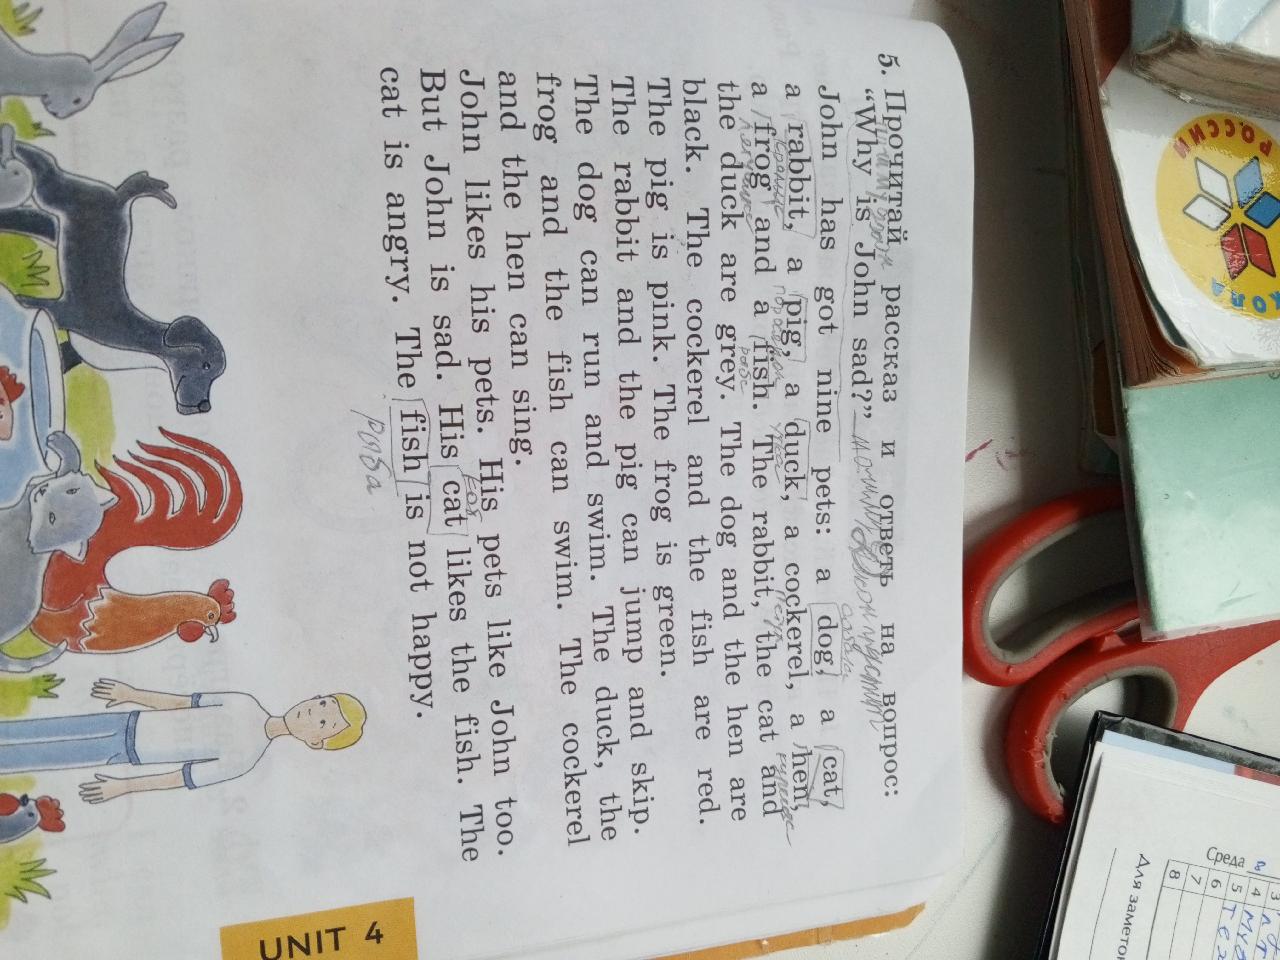 5. Прочитай рассказ и ответь на вопрос:
“Why is John sad?”
John has got nine pets: a dog, a cat,
собака
a rabbit, a pig, a duck, a cockerel, a hen,
утка
a frog and a fish. The rabbit, the cat and
the duck are grey. The dog and the hen are
black. The cockerel and the fish are red.
The pig is pink. The frog is green.
The rabbit and the pig can jump and skip.
The dog can run and swim. The duck, the
frog and the fish can swim. The cockerel
and the hen can sing.
John likes his pets. His pets like John too.
кот
But John is sad. His cat likes the fish. The
cat is angry. The fish is not happy.
рыба
UNIT 4
РОССИИ
Среда
3
4
5
6
7
8
Для заметок